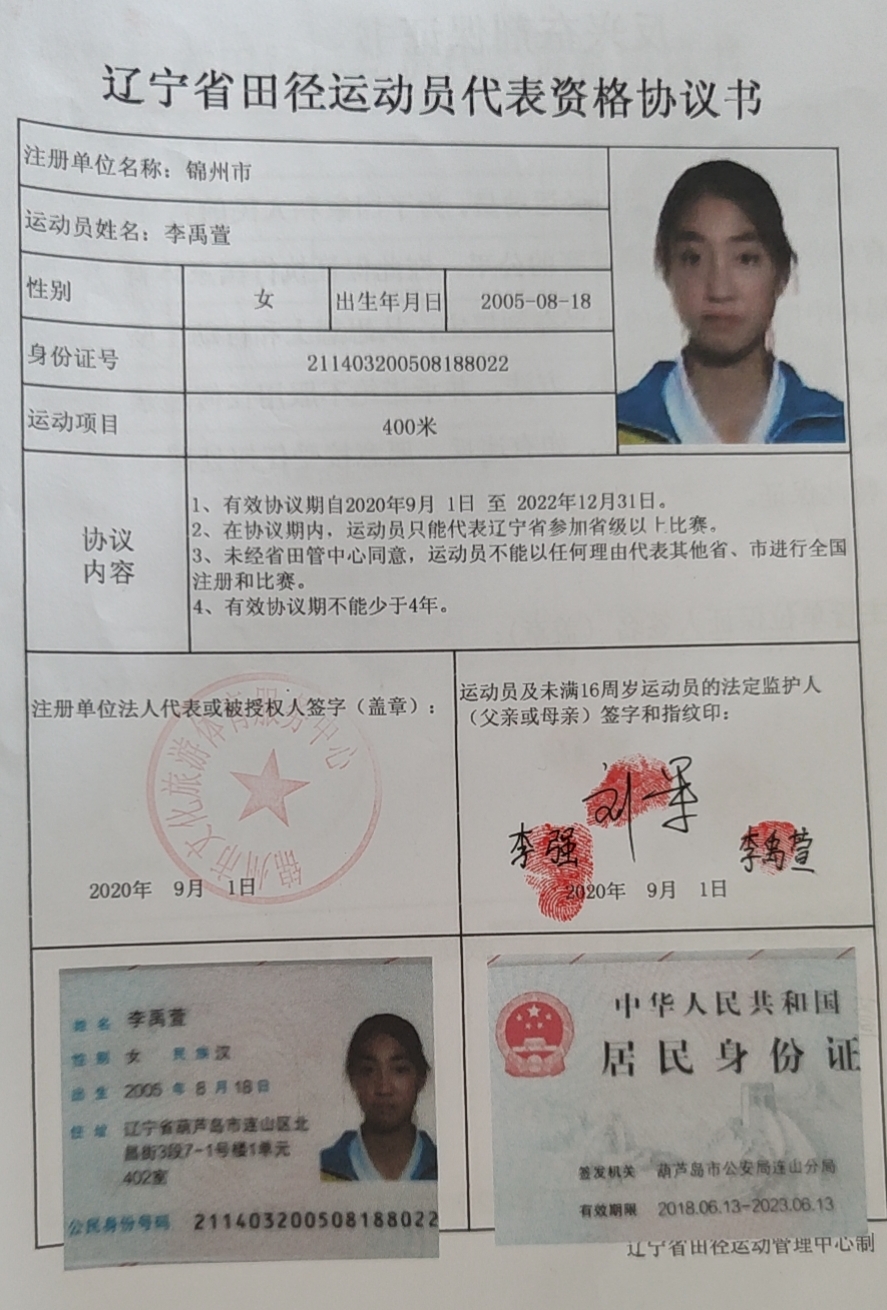 辽宁省田径运动员代表资格协议书
注册单位名称：锦州市
运动员姓名：李禹萱
性别 女 出生年月日 2005-08-18
身份证号 211403200508188022
运动项目 400米
协议内容
1、有效协议期自2020年9月 1日 至 2022年12月31日。
2、在协议期内，运动员只能代表辽宁省参加省级以上比赛。
3、未经省田管中心同意，运动员不能以任何理由代表其他省、市进行全国
注册和比赛。
4、有效协议期不能少于4年。
注册单位法人代表或被授权人签字（盖章）：
锦州市文化旅游体育服务中心
2020年 9月 1日
运动员及未满16周岁运动员的法定监护人
（父亲或母亲）签字和指纹印：
李强
李禹萱
2020年 9月 1日
姓名 李禹萱
性别 女 民族 汉
出生 2005 年 8 月 18 日
住址 辽宁省葫芦岛市连山区北
昌街3段7-1号楼1单元
402室
公民身份号码 211403200508188022
中华人民共和国
居民身份证
签发机关 葫芦岛市公安局连山分局
有效期限 2018.06.13-2023.06.13
辽宁省田径运动管理中心制